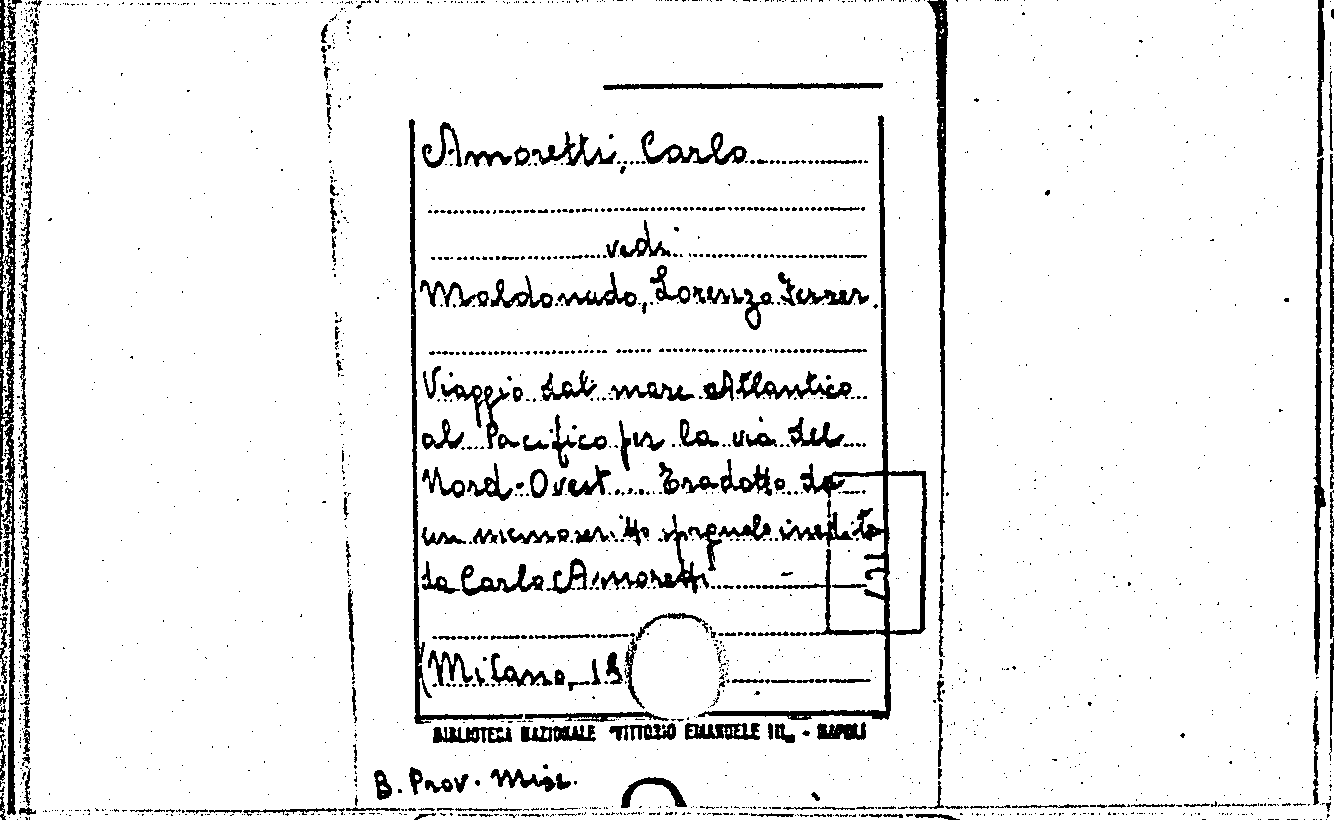 Amoretti, Carlo
vedi
Maldonado, Lorenzo Ferrer.
Viaggio dal mare Atlantico
al Pacifico per la via del
Nord-Ovest... Tradotto da
un manoscritto spagnolo inedito
da Carlo Amoretti
(Milano, 18
BIBLIOTECA NAZIONALE "VITTORIO EMANUELE III" - NAPOLI
B. Prov. Misc.